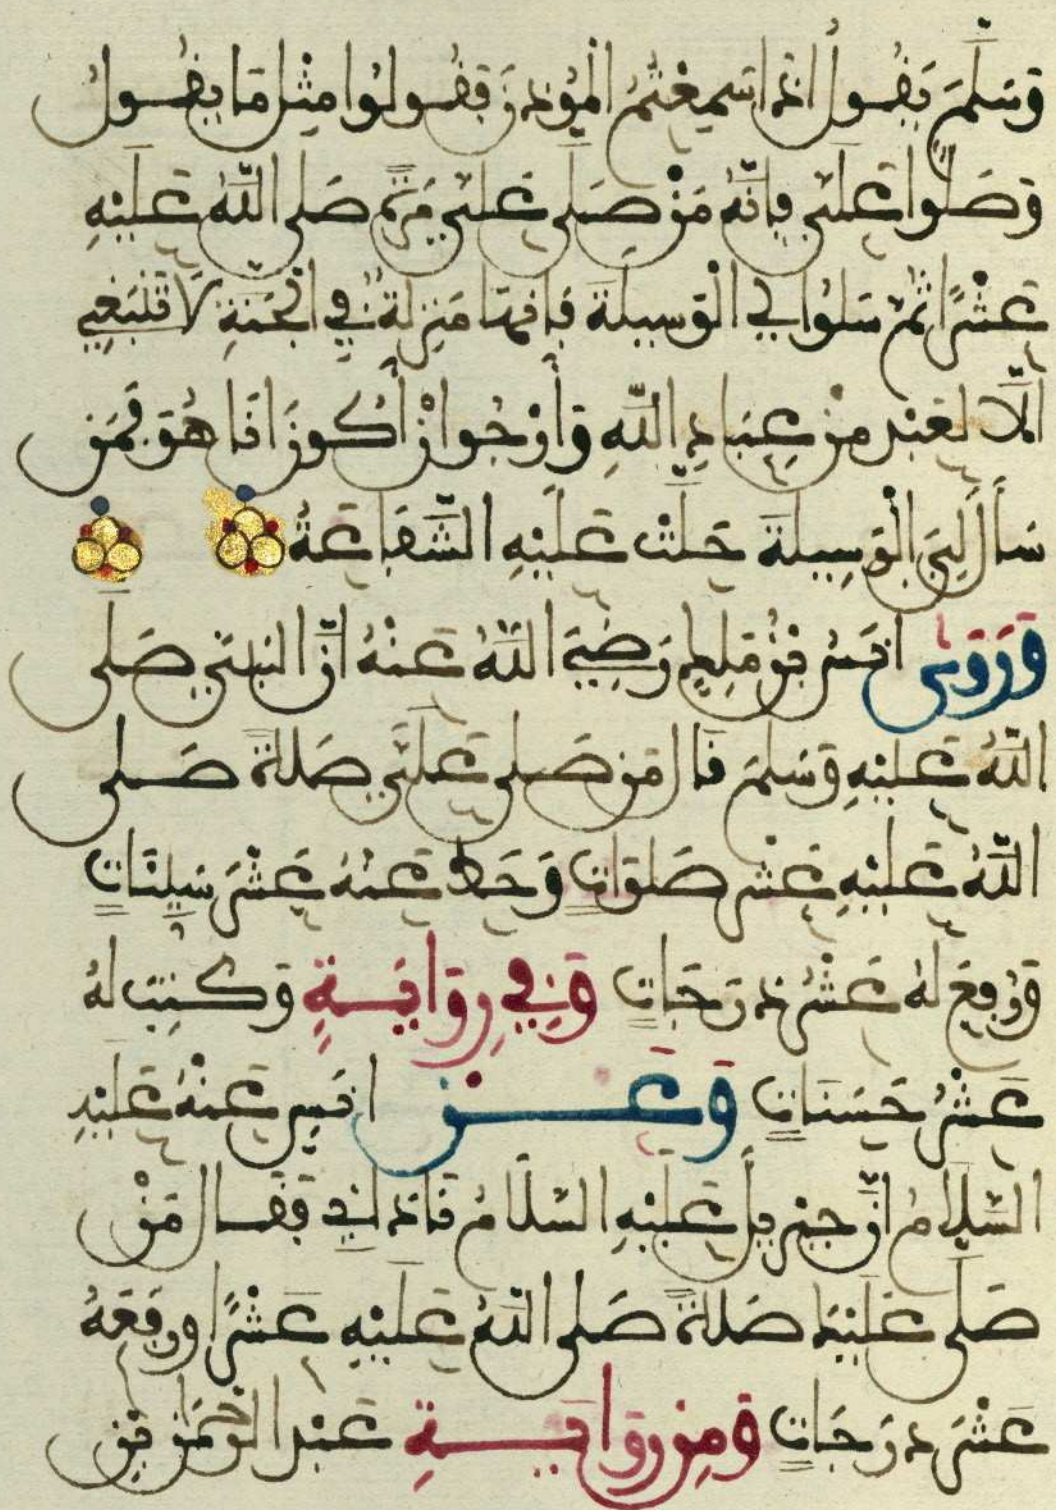 وَسَلَّمَ يَقُولُ اذا سَمِعْتُمُ الْمُوَذِّنَ فَقُولُوا مِثْلَ مَا يَقُولُ
وَصَلُّوا عَلَيَّ فَإِنَّهُ مَنْ صَلَّى عَلَيَّ مَرَّةً صَلَّى اللَّهُ عَلَيْهِ
عَشْرًا ثُمَّ سَلُوا لِي الْوَسِيلَةَ فَإِنَّهَا مَنْزِلَةٌ فِي الْجَنَّةِ لَا تَنْبَغِي
الَّا لِعَبْدٍ مِنْ عِبَادِ اللَّهِ وَأَرْجُوا أنْ أَكُونَ انَا هُوَ فَمَنْ
سَأَلَ لِيَ الْوَسِيلَةَ حَلَّتْ عَلَيْهِ الشَّفَاعَةُ
وَرَوَى انَسُ بْنُ مَلِكٍ رَضِيَ اللَّهُ عَنْهُ انَّ النَّبِيَّ صَلَّى
اللَّهُ عَلَيْهِ وَسَلَّمَ قَالَ مَنْ صَلَّى عَلَيَّ صَلَاةً صَلَّى
اللَّهُ عَلَيْهِ عَشْرَ صَلَوَاتٍ وَحَطَّ عَنْهُ عَشْرَ سَيِّئَاتٍ
وَرُفِعَ لَهُ عَشْرُ دَرَجَاتٍ وَفِي رِوَايَةٍ وَكُتِبَ لَهُ
عَشْرُ حَسَنَاتٍ وَعَنْ انَسٍ عَنْهُ عَلَيْهِ
السَّلَامُ أنَّ جِبْرِيلَ عَلَيْهِ السَّلَامُ نَادَانِي فَقَالَ مَنْ
صَلَّى عَلَيْكَ صَلَاةً صَلَّى اللَّهُ عَلَيْهِ عَشْرًا ورَفَعَهُ
عَشْرَ دَرَجَاتٍ وَمِنْ رِوَايَةِ عَبْدِ الرَّحْمَنِ بْنِ